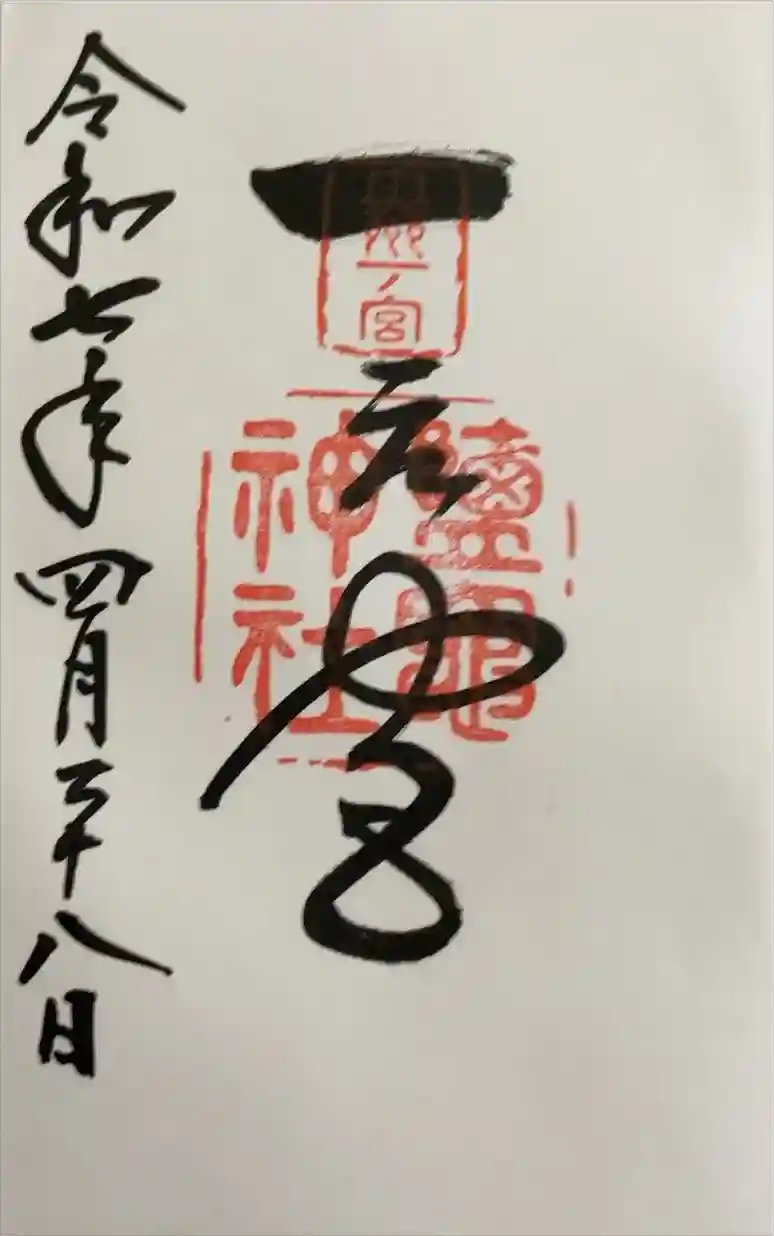 一之宮
一ノ宮
鹽竈
神社
令和七年四月二十八日